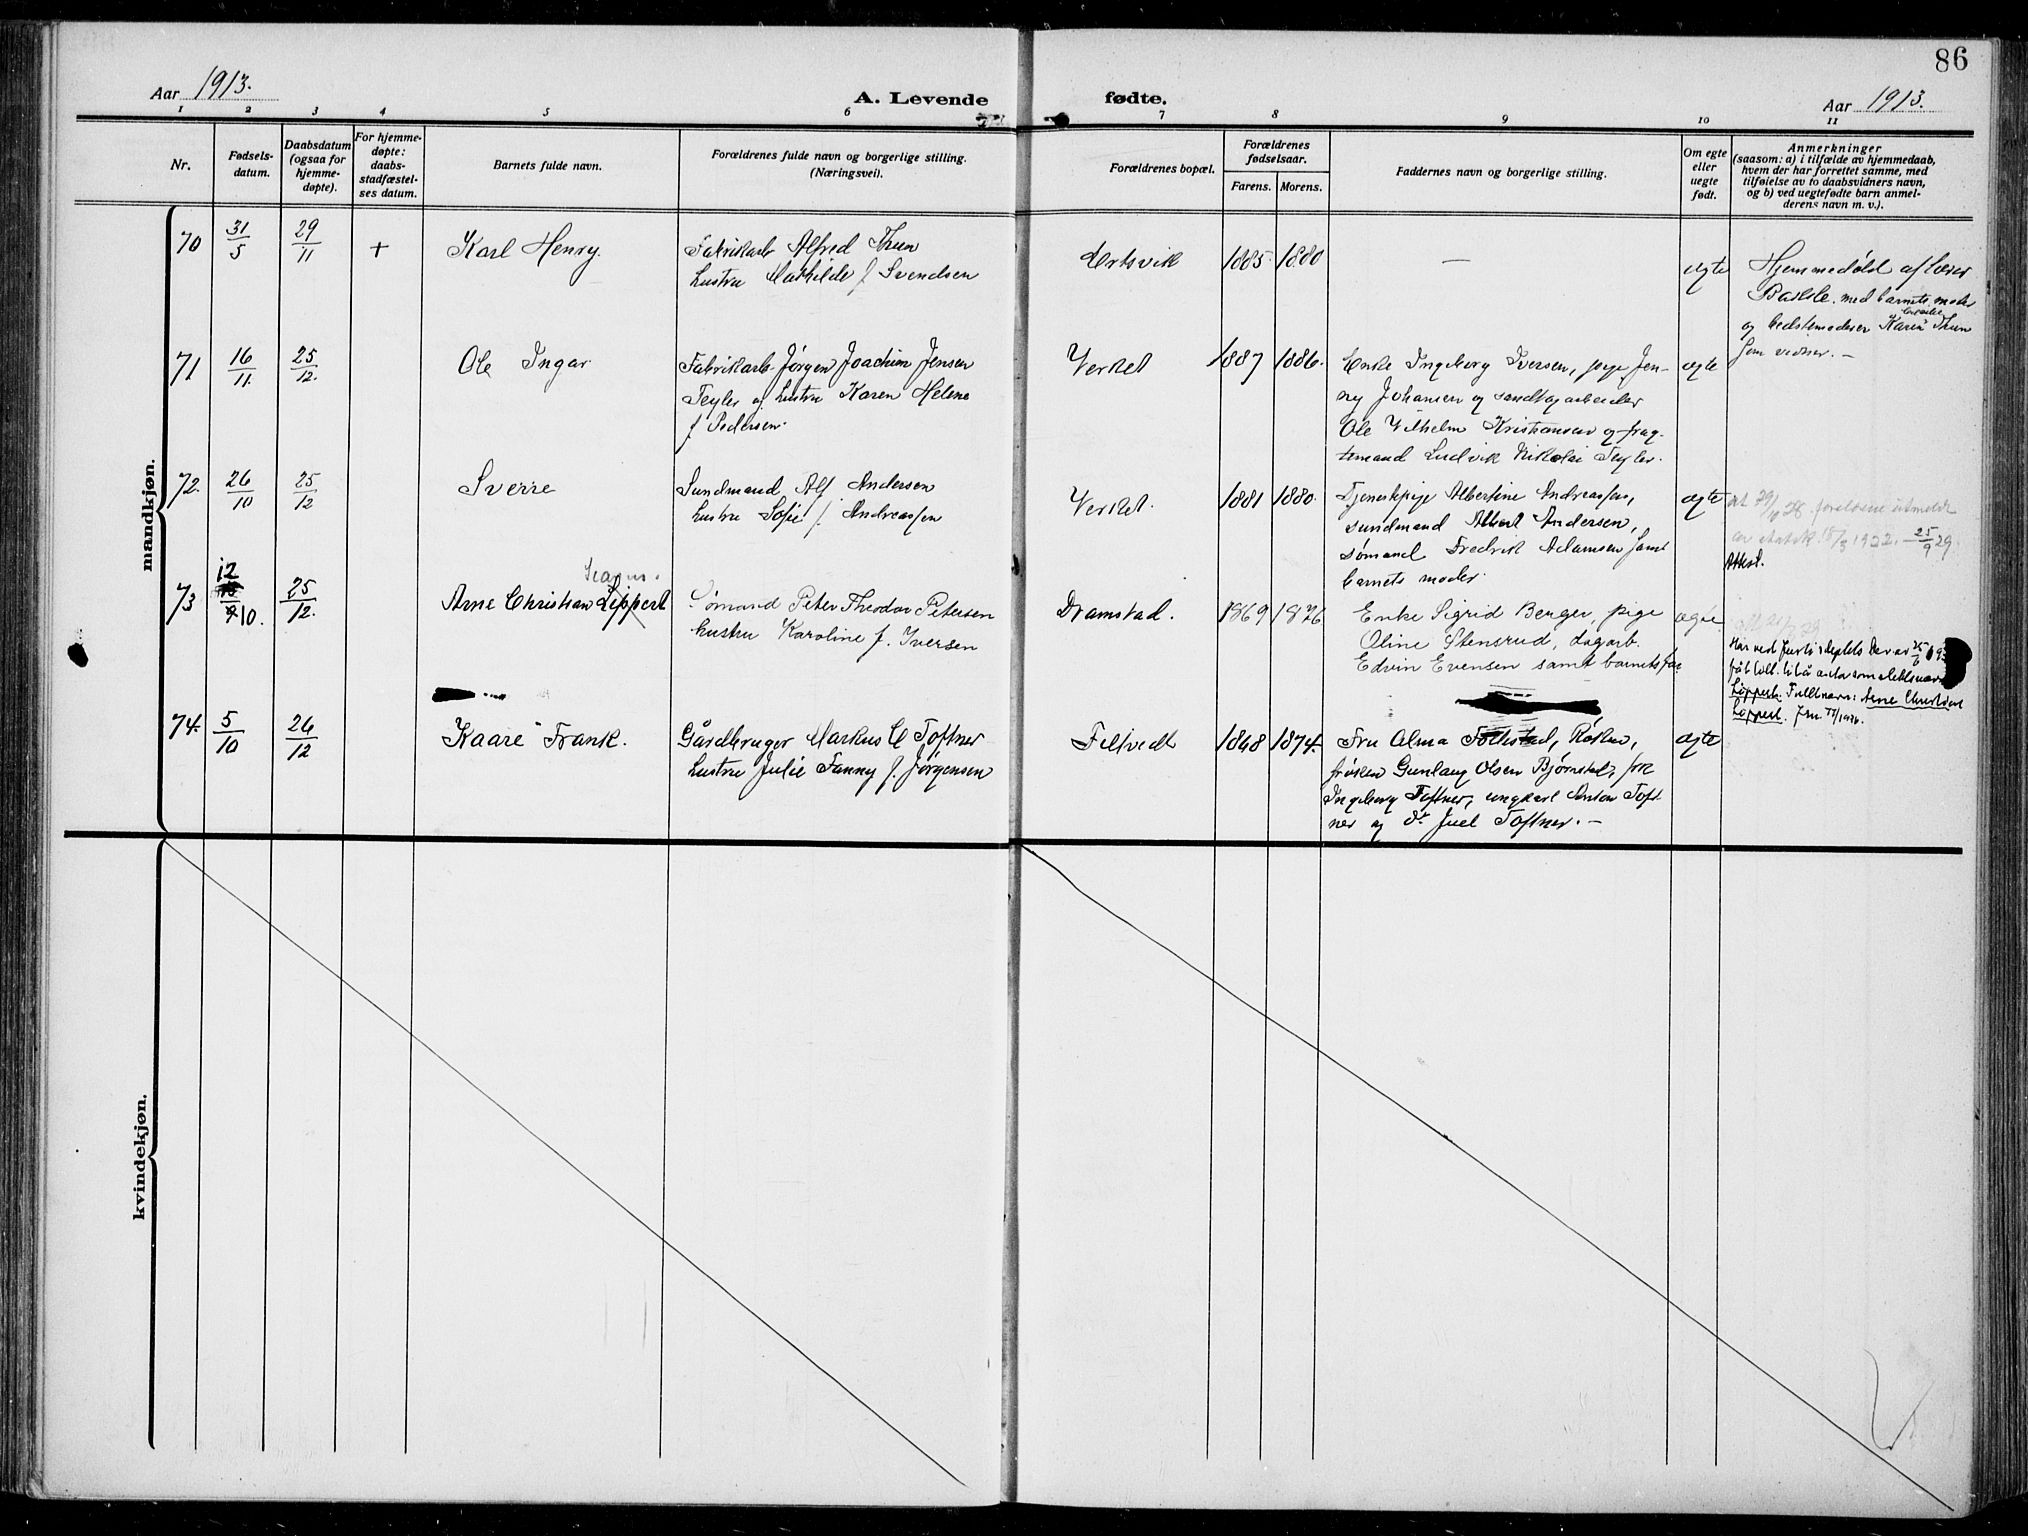 86
Aar 1913.
A. Levende fødte.
Aar 1913.
1 2 3 4 5 6 7 8 9 10 11
Nr.
Fødsels-
datum.
Daabsdatum
(ogsaa for
hjemme-
døpte).
For hjemme-
døpte:
daabs-
stadfæstel-
ses datum.
Barnets fulde navn.
Forældrenes fulde navn og borgerlige stilling.
(Næringsvei).
Forældrenes bopæl.
Forældrenes
fødselsaar.
Farens. Morens.
Faddernes navn og borgerlige stilling.
Om egte
eller
uegte
født.
Anmerkninger
(saasom: a) i tilfælde av hjemmedaab,
hvem der har forrettet samme, med
tilføielse av to daabsvidners navn,
og b) ved uegtefødte barn anmel-
derens navn m. v.).
mandkjøn.
70 31/5 29/11 + Karl Henry.
Fabrikarb Alfred Thun
hustru Mathilde f Svendsen
Ertsvik 1885 1880 — egte
Hjemmedøbt af lærer
med barnets moder
og bedstemoder Karen Thun
som vidner. —
71 16/11. 25/12. Ole Ingar
Fabrikarb Jørgen Joachim Jensen
Teyler og hustru Karen Helene
f Pedersen.
Verket 1887 1886.
Enke Ingeborg Iversen, pige Jen-
ny Johansen og sandtagarbeider
Ole Vilhelm Kristiansen og frag-
temand Ludvik Nikolai Teyler.
egte
72. 26/10 25/12 Sverre
Sundmand Alf Andersen
hustru Sofie f. Andreassen
Verket. 1881 1880.
Tjenestpige Albertine Andreassen,
sundmand Albert Andersen,
sømand Fredrik Adamsen samt
barnets moder.
egte
forældrene utmeldt
1922. 25/9 29.
Attest.
73 12/10. 25/12. Arne Christian Lippert
Sømand Peter Theodor Petersen
hustru Karoline f. Iversen
Dramstad. 1869 1876
Enke Sigrid Berger, pige
Oline Stensrud, dagarb.
Edvin Evensen samt barnets far
egte
Har ved Justisdeptets
Lippert. Fullt navn: Arne Christian
Lippert.
74. 5/10 26/12 Kaare Frank.
Gårdbruger Markus C Toftner
hustru Julie Fanny f. Jørgensen
Filtvedt 1868 1874.
Fru Alma Tollestad, Røken,
frøken Gunlaug Olsen Bjørnstad, frk
Ingeborg Toftner, ungkarl Anton Toft
ner og dt Juel Toftner. —
egte
kvindekjøn.